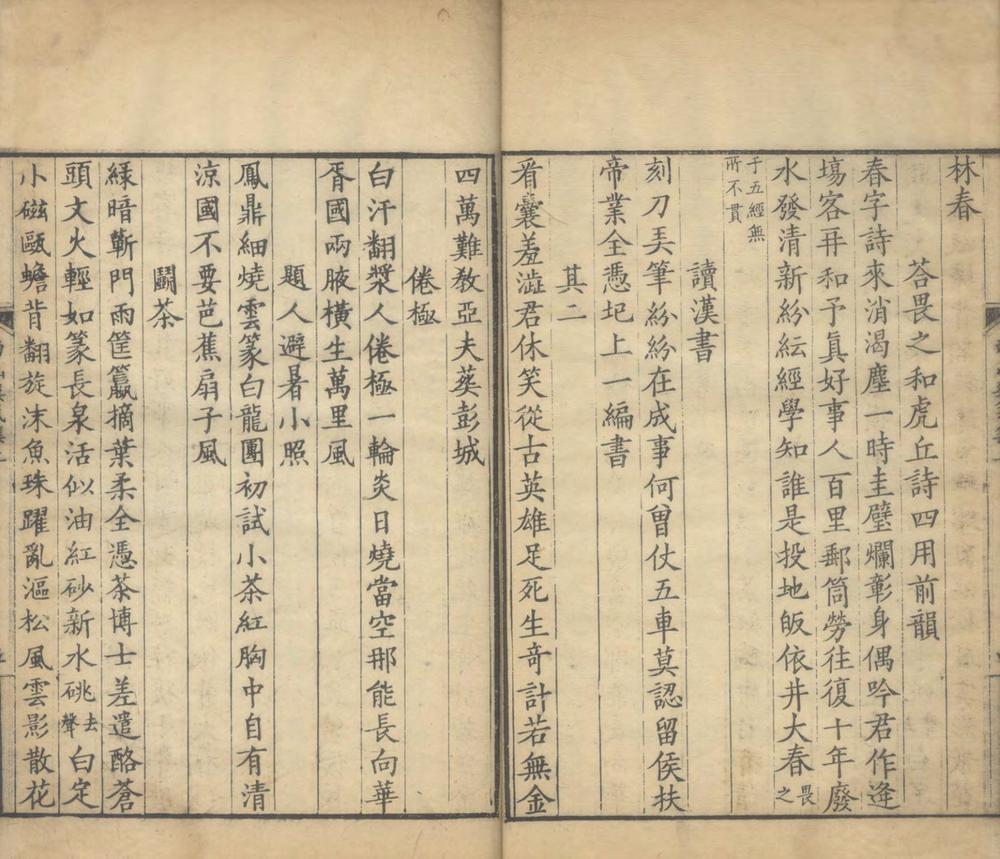 林春
荅畏之和虎丘詩四用前韻
春字詩來消渴塵一時圭璧爛彰身偶吟君作逄
塲客再和予眞好事人百里郵筒勞往復十年廢
水發清新紛紜經學知誰是投地皈依井大春畏之
于五經無
所不貫
讀漢書
刻刀弄筆紛紛在成事何曾仗五車莫認留侯扶
帝業全憑圯上一編書
其二
看囊羞澁君休笑從古英雄足死生竒計若無金
四萬難敎亞夫葬彭城
倦極
白汗翻漿人倦極一輪炎日燒當空那能長向華
胥國兩腋橫生萬里風
題人避暑小照
鳳鼎細燒雲篆白龍團初試小茶紅胸中自有清
涼國不要芭蕉扇子風
鬭茶
綠暗蘄門雨筐籯摘葉柔全憑茶博士差遣酪蒼
頭文火輕如篆長泉活似油紅砂新水硗去聲白定
小磁甌蟾背翻旋沫魚珠躍亂漚松風雲影散花